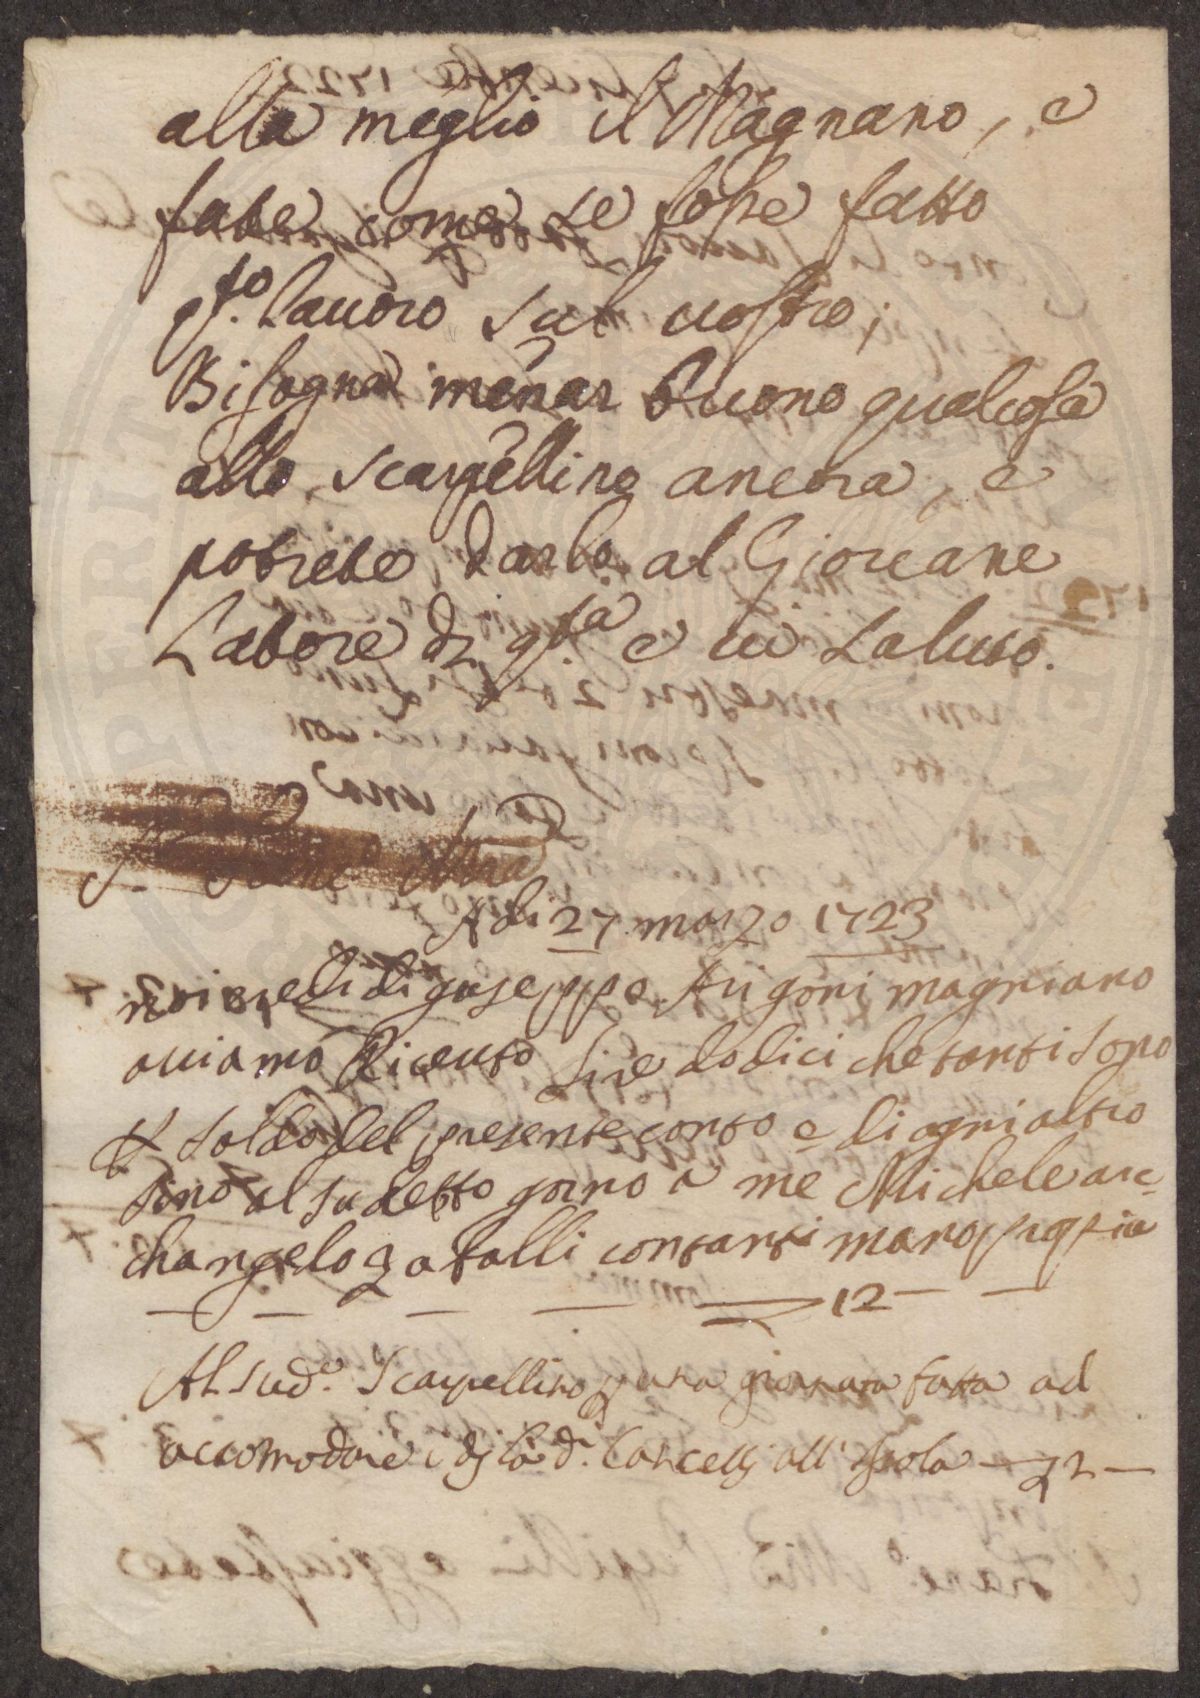 alla meglio il Magnano, e
fate come se fosse fatto
q.sto Lavoro sul vostro;
Bisogna menar Buono qualcosa
allo scarpellino ancora, e
potrete darlo al Giovane
Latore di q.sta e vi saluto.
A di 27 marzo 1723
noi eredi di giuseppo Arigoni magniano
aviamo Ricevto Lire dodici che tanti sono
saldo del presente conto e di ogni altro
sino al sudetto gorno a me Michele arc=
changelo zatalli contanti mano propria
12
Al sud.o Scarpellino p una giornata fatta ad
accomodare i all' Isola